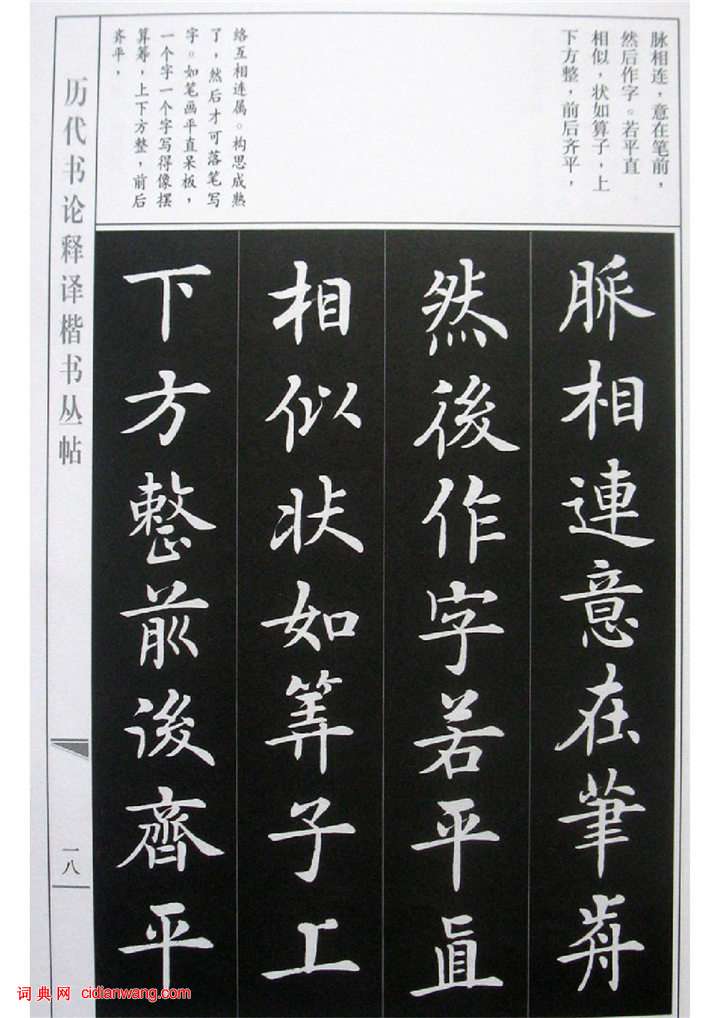 脉相连，意在笔前，
然后作字。若平直
相似，状如算子，上
下方整，前后齐平，
络互相连属。构思成熟
了，然后才可落笔写
字。如笔画平直呆板，
一个字一个字写得像摆
算筹，上下方整，前后
齐平，
脈相連意在筆歬
然後作字若平直
相似状如筭子上
下方整前後齊平
历代书论释译楷书丛帖
一八
词典网 cidianwang.com